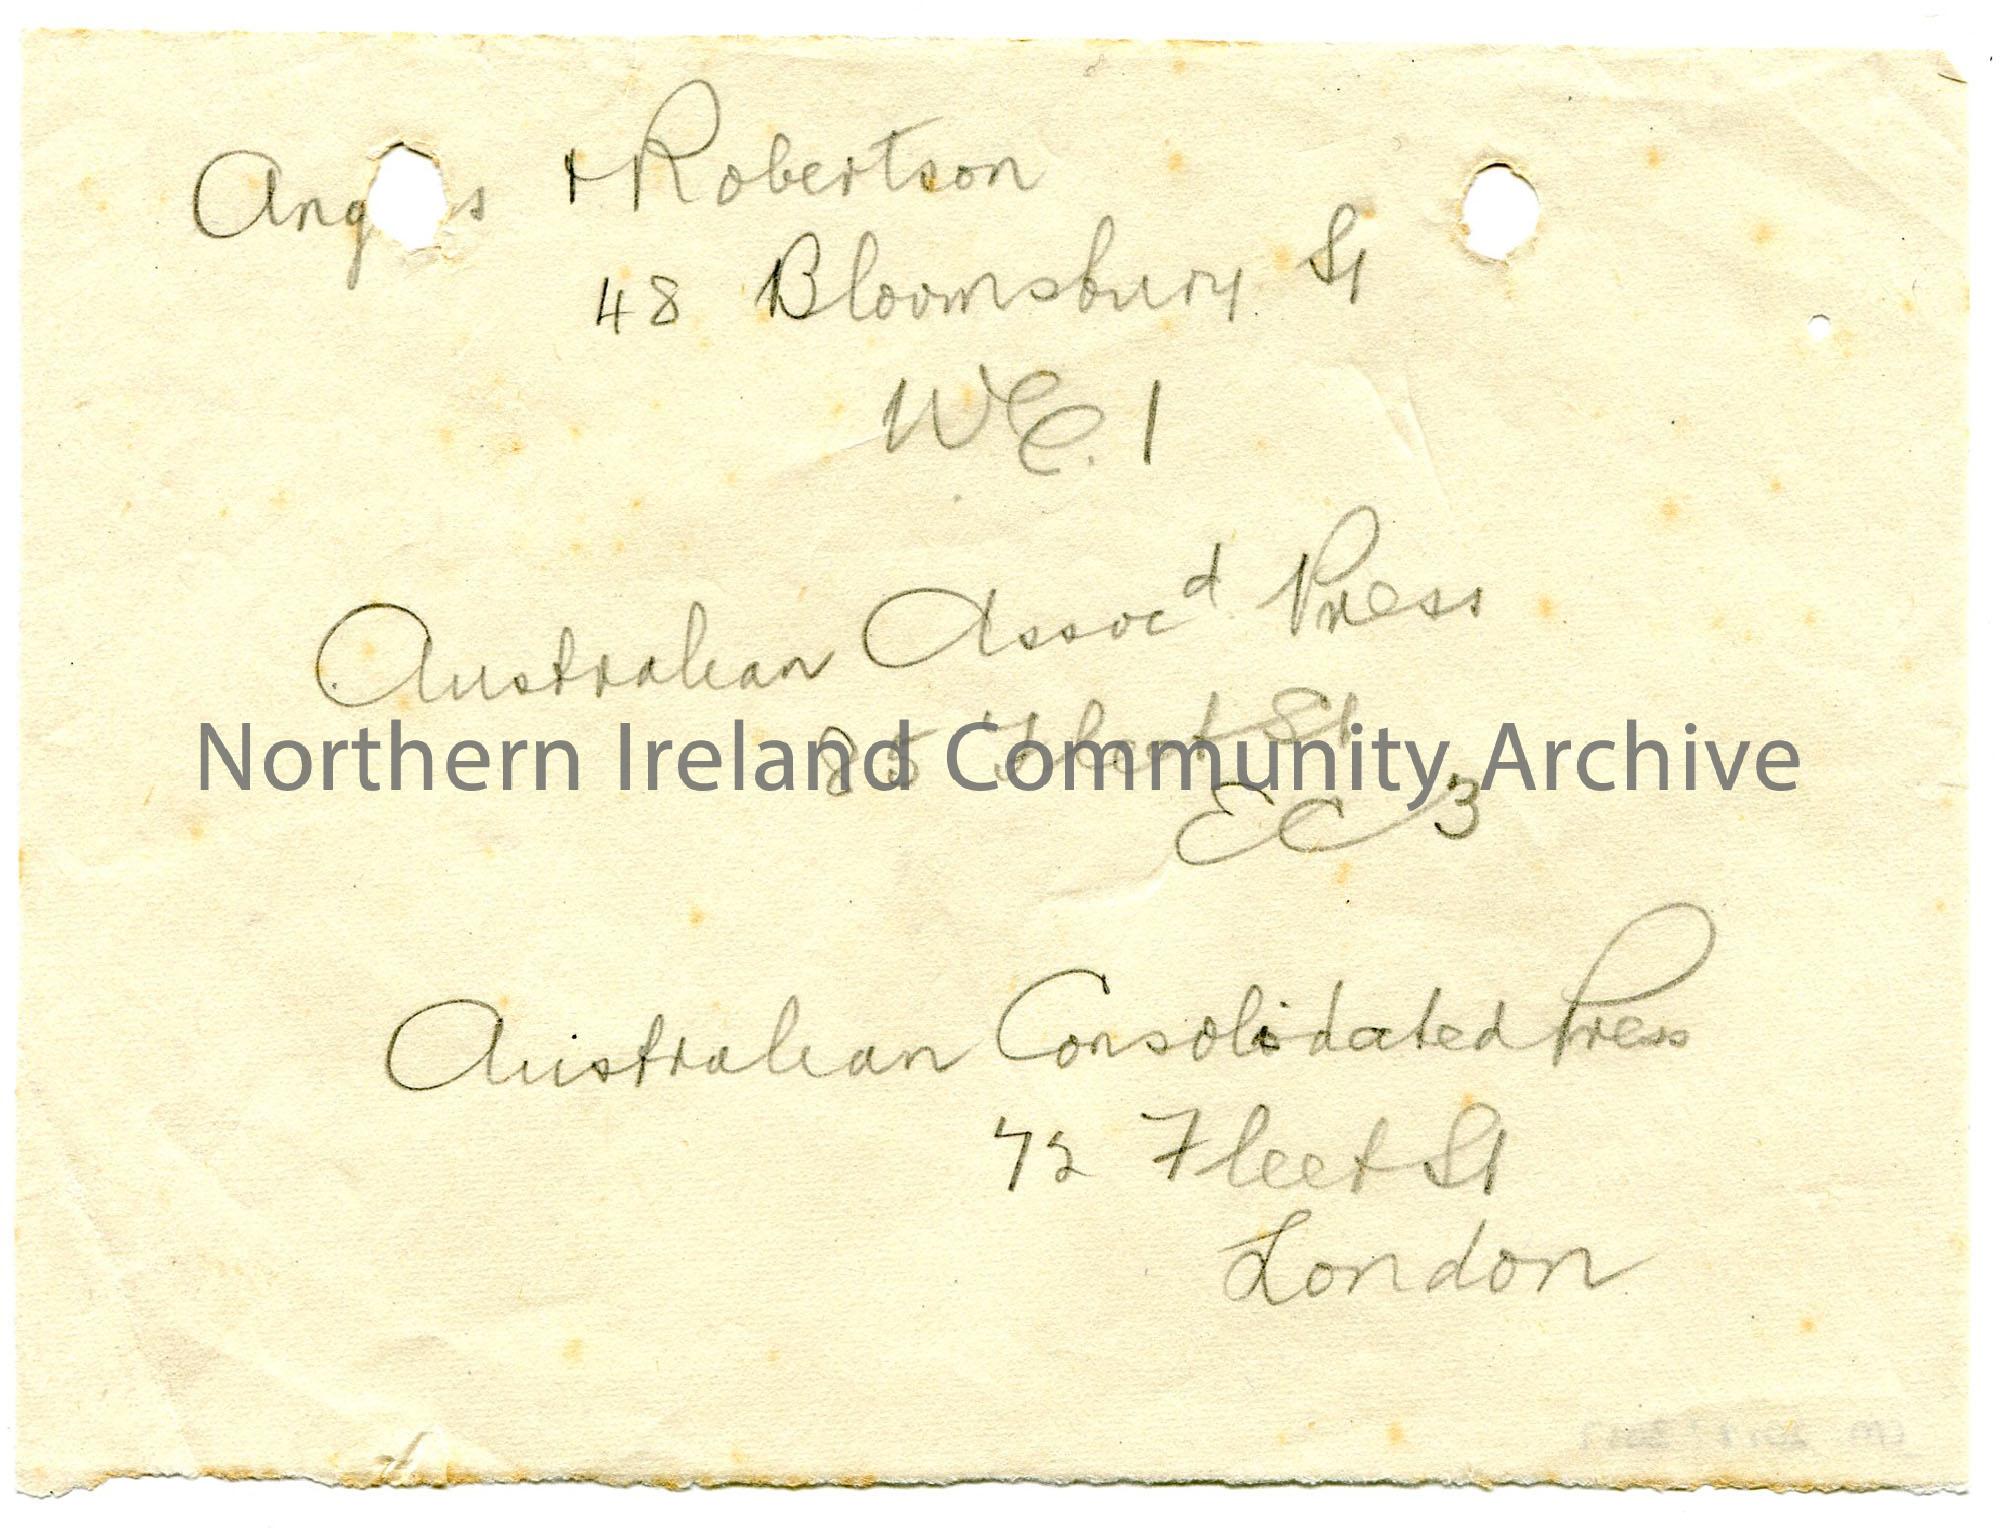 Angus + Robertson
48 Bloomsbury St
W.C. 1
Australian Assocd Press
85 Fleet St
Northern Ireland Community Archive
EC 3
Australian Consolidated Press
72 Fleet St
London